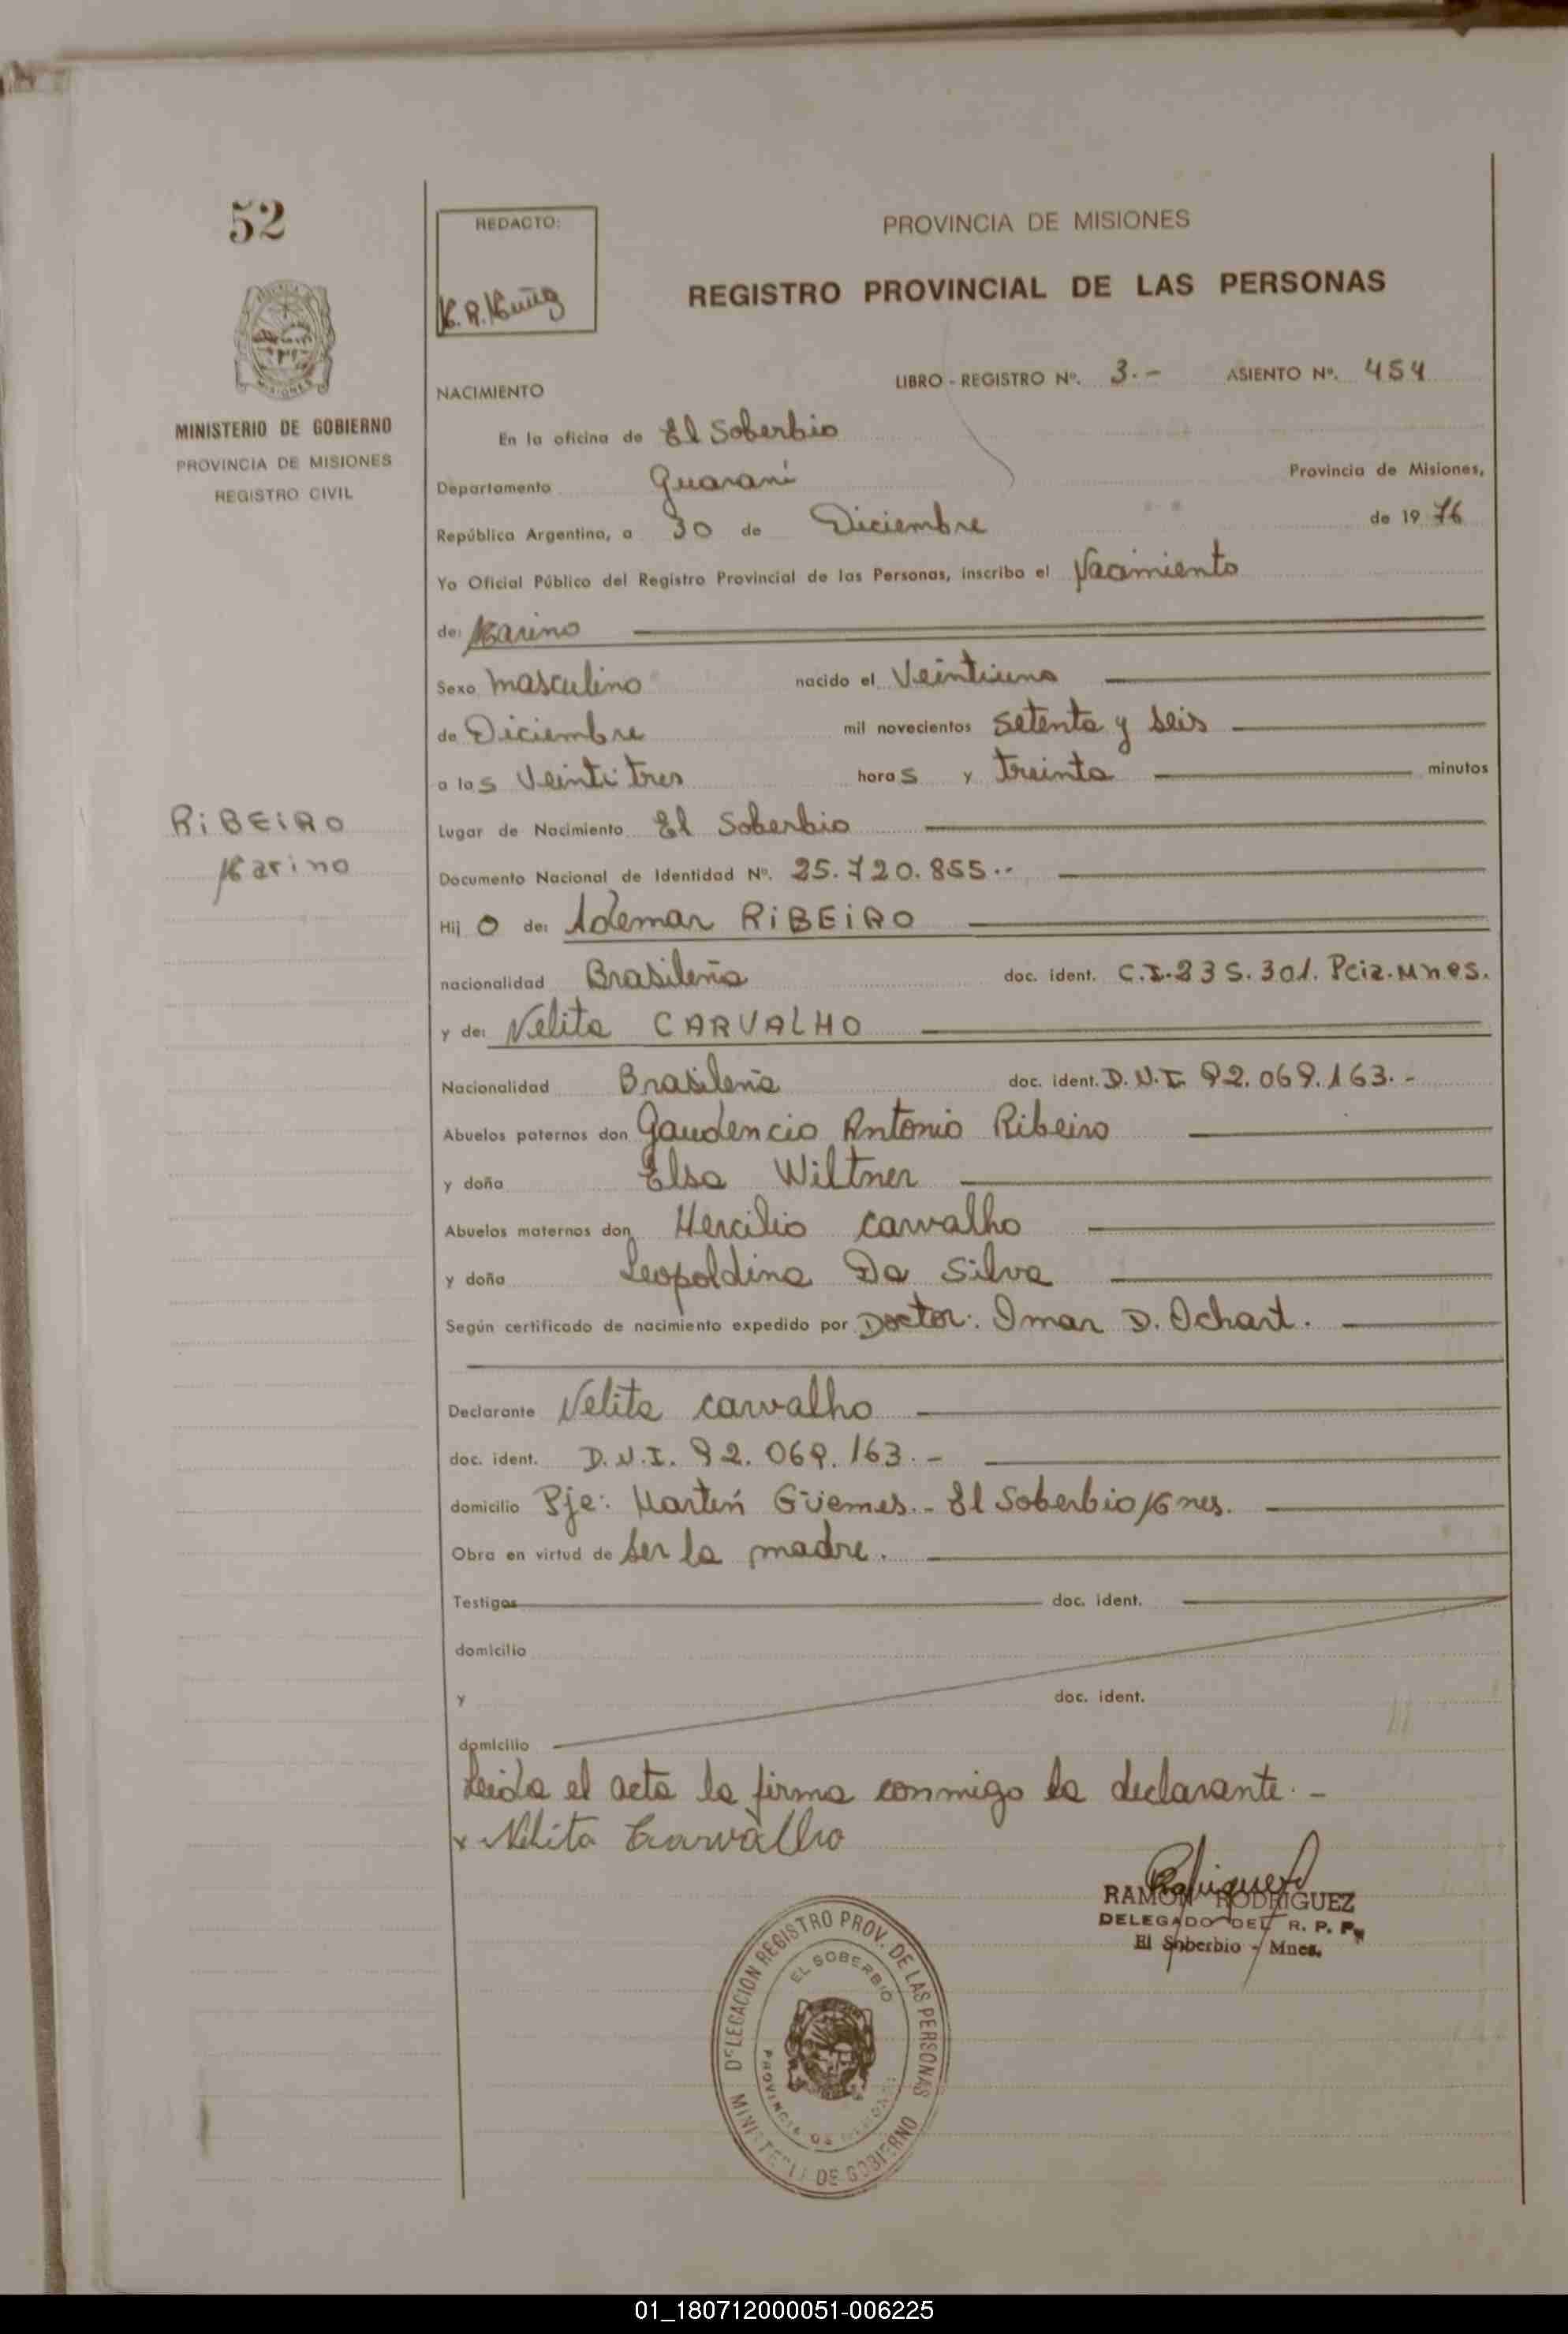 52
REDACTO:
PROVINCIA DE MISIONES
REGISTRO PROVINCIAL DE LAS PERSONAS
MINISTERIO DE GOBIERNO
PROVINCIA DE MISIONES
REGISTRO CIVIL
NACIMIENTO LIBRO - REGISTRO Nº. 3.- ASIENTO Nº. 454
En la oficina de El Soberbio
Departamento Guaraní Provincia de Misiones,
República Argentina, a 30 de Diciembre de 1976
Yo Oficial Público del Registro Provincial de las Personas, inscribo el Nacimiento
de: Marino
Sexo masculino nacido el Veintiuno
de Diciembre mil novecientos setenta y seis
a las Veinti tres horas y treinta minutos
RiBEiRO
Marino
Lugar de Nacimiento El Soberbio
Documento Nacional de Identidad Nº. 25.720.855.--
Hijo de: Ademar RiBEiRO
nacionalidad Brasileña doc. ident. C.I.235.301. Pcia. Mnes.
y de: Nelita CARVALHO
Nacionalidad Brasileña doc. ident. D.N.I. 92.069.163.-
Abuelos paternos don Gaudencio Antonio Ribeiro
y doña Elsa Wiltner
Abuelos maternos don Hercilio carvalho
y doña Leopoldina Da Silva
Según certificado de nacimiento expedido por Doctor: Omar D. Ochart.
Declarante Nelita carvalho
doc. ident. D.N.I. 92.069.163.-
domicilio Pje: Martín Güemes.- El Soberbio Mnes.
Obra en virtud de ser la madre.
Testigos doc. ident.
domicilio
y doc. ident.
domicilio
Leida el acta la firma conmigo la declarante.-
x Nelita Carvalho
RAMON RODRIGUEZ
DELEGADO DEL R. P. P.
El Soberbio - Mnes.
DELEGACION REGISTRO PROV. DE LAS PERSONAS
EL SOBERBIO
PROVINCIA DE MISIONES
MINISTERIO DE GOBIERNO
01_180712000051-006225